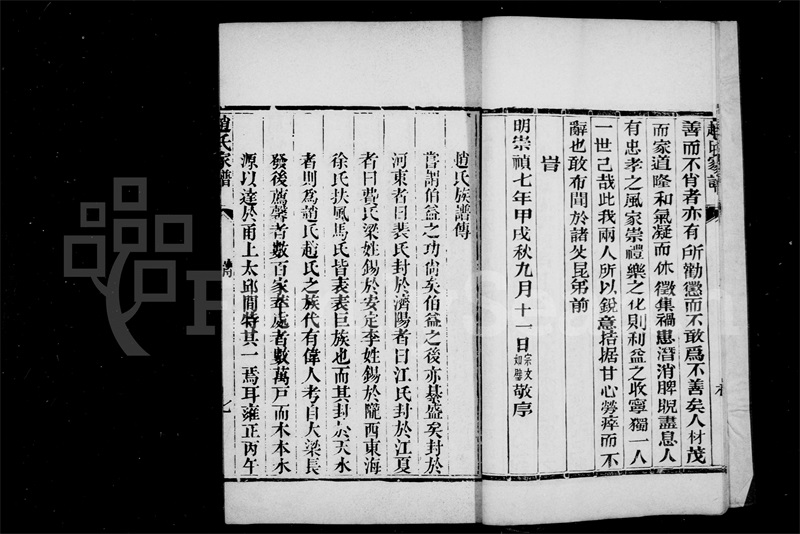 善而不肖者亦有所勸懲而不敢爲不善矣人材茂
而家道隆和氣凝而休徵集禍患潛消睥睨盡息人
有忠孝之風家崇禮樂之化則利益之收寧獨一人
一世已哉此我兩人所以銳意拮据甘心勞瘁而不
辭也敢布聞於諸父昆弟前
旹
明崇禎七年甲戌秋九月十一日宗文如璧敬序
趙氏族譜傳
嘗謂伯益之功尙矣伯益之後亦綦盛矣封於
河東者曰裴氏封於濟陽者曰江氏封於江夏
者曰費氏梁姓錫於安定李姓錫於隴西東海
徐氏扶風馬氏皆表表巨族也而其封於天水
者則爲趙氏趙氏之族代有偉人考自大梁長
發後薦馨者數百家萃處者數萬戸而木本水
源以達於甬上太邱間特其一焉耳雍正丙午
趙氏家譜
趙氏家譜
FamilySearch